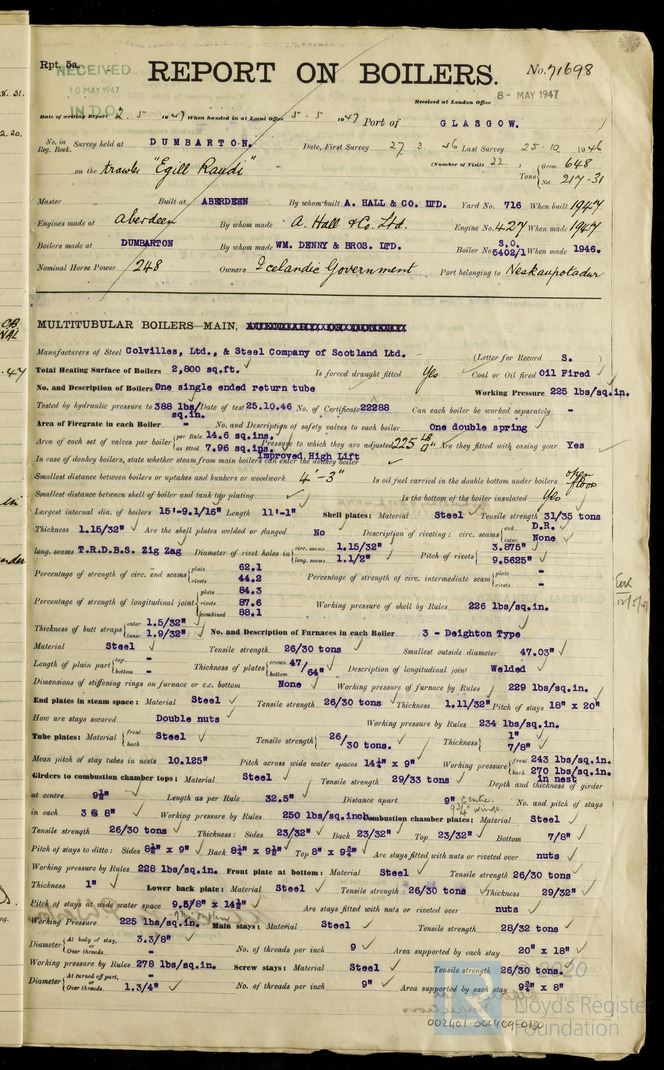 Rpt. 5a.
RECEIVED
10 MAY 1947
IN D.O.
REPORT ON BOILERS.
No. 71698
Received at London Office 8 - MAY 1947
Date of writing Report 2. 5. 1947 When handed in at Local Office 5. 5. 1947 Port of GLASGOW.
No. in Reg. Book. Survey held at DUMBARTON. Date, First Survey 27. 3. 46 Last Survey 25. 10. 1946
(Number of Visits 22)
on the trawler "Egill Raudi" Tons { Gross 648 Net 217.31
Master Built at ABERDEEN By whom built A. HALL & CO. LTD. Yard No. 716 When built 1947
Engines made at Aberdeen By whom made A. Hall & Co. Ltd. Engine No. 427 When made 1947
Boilers made at DUMBARTON By whom made WM. DENNY & BROS. LTD. Boiler No. S.O. 5402/1 When made 1946.
Nominal Horse Power 248 Owners Icelandic Government Port belonging to Neskaupstadur
MULTITUBULAR BOILERS—MAIN,
Manufacturers of Steel Colvilles, Ltd., & Steel Company of Scotland Ltd. (Letter for Record S. )
Total Heating Surface of Boilers 2,800 sq.ft. Is forced draught fitted Yes Coal or Oil fired Oil Fired
No. and Description of Boilers One single ended return tube Working Pressure 225 lbs/sq.in.
Tested by hydraulic pressure to 388 lbs/sq.in. Date of test 25.10.46 No. of Certificate 22288 Can each boiler be worked separately -
Area of Firegrate in each Boiler - No. and Description of safety valves to each boiler One double spring
Area of each set of valves per boiler { per Rule 14.6 sq.ins. as fitted 7.96 sq.ins. Pressure to which they are adjusted 225 lb/□" Are they fitted with easing gear Yes
Improved High Lift
In case of donkey boilers, state whether steam from main boilers can enter the donkey boiler
Smallest distance between boilers or uptakes and bunkers or woodwork 4'-3" Is oil fuel carried in the double bottom under boilers open floor
Smallest distance between shell of boiler and tank top plating Is the bottom of the boiler insulated Yes
Largest internal dia. of boilers 15'-9.1/16" Length 11'-1" Shell plates: Material Steel Tensile strength 31/35 tons
Thickness 1.15/32" Are the shell plates welded or flanged No Description of riveting: circ. seams { end D.R. inter. None
long. seams T.R.D.B.S. Zig Zag Diameter of rivet holes in { circ. seams 1.15/32" long. seams 1.1/2" Pitch of rivets { 3.875" 9.5625"
Percentage of strength of circ. end seams { plate 62.1 rivets 44.2 Percentage of strength of circ. intermediate seam { plate - rivets -
Percentage of strength of longitudinal joint { plate 84.3 rivets 87.6 combined 88.1 Working pressure of shell by Rules 226 lbs/sq.in.
Thickness of butt straps { outer 1.5/32" inner 1.9/32" No. and Description of Furnaces in each Boiler 3 - Deighton Type
Material Steel Tensile strength 26/30 tons Smallest outside diameter 47.03"
Length of plain part { top - bottom - Thickness of plates { crown bottom 47/64" Description of longitudinal joint Welded
Dimensions of stiffening rings on furnace or c.c. bottom None Working pressure of furnace by Rules 229 lbs/sq.in.
End plates in steam space: Material Steel Tensile strength 26/30 tons Thickness 1.11/32" Pitch of stays 18" x 20"
How are stays secured Double nuts Working pressure by Rules 234 lbs/sq.in.
Tube plates: Material { front back Steel Tensile strength { 26/30 tons. Thickness { 1" 7/8"
Mean pitch of stay tubes in nests 10.125" Pitch across wide water spaces 14½" x 9" Working pressure { front 243 lbs/sq.in. back 270 lbs/sq.in. in nest
Girders to combustion chamber tops: Material Steel Tensile strength 29/33 tons Depth and thickness of girder
at centre 9½" Length as per Rule 32.5" Distance apart 9" centre. 9¾" wings. No. and pitch of stays
in each 3 @ 8" Working pressure by Rules 250 lbs/sq.inch Combustion chamber plates: Material Steel
Tensile strength 26/30 tons Thickness: Sides 23/32" Back 23/32" Top 23/32" Bottom 7/8"
Pitch of stays to ditto: Sides 8½" x 9" Back 8¼" x 9½" Top 8" x 9¾" Are stays fitted with nuts or riveted over nuts
Working pressure by Rules 228 lbs/sq.in. Front plate at bottom: Material Steel Tensile strength 26/30 tons
Thickness 1" Lower back plate: Material Steel Tensile strength 26/30 tons Thickness 29/32"
Pitch of stays at wide water space 9.5/8" x 14½" Are stays fitted with nuts or riveted over nuts
Working Pressure 225 lbs/sq.in. Main stays: Material Steel Tensile strength 28/32 tons
Diameter { At body of stay, or Over threads 3.3/8" No. of threads per inch 9 Area supported by each stay 20" x 18"
Working pressure by Rules 278 lbs/sq.in. Screw stays: Material Steel Tensile strength 26/30 tons.
Diameter { At turned off part, or Over threads 1.3/4" No. of threads per inch 9" Area supported by each stay 9¾" x 8"
© 2020
Lloyd's Register
Foundation
002401-002409-0130